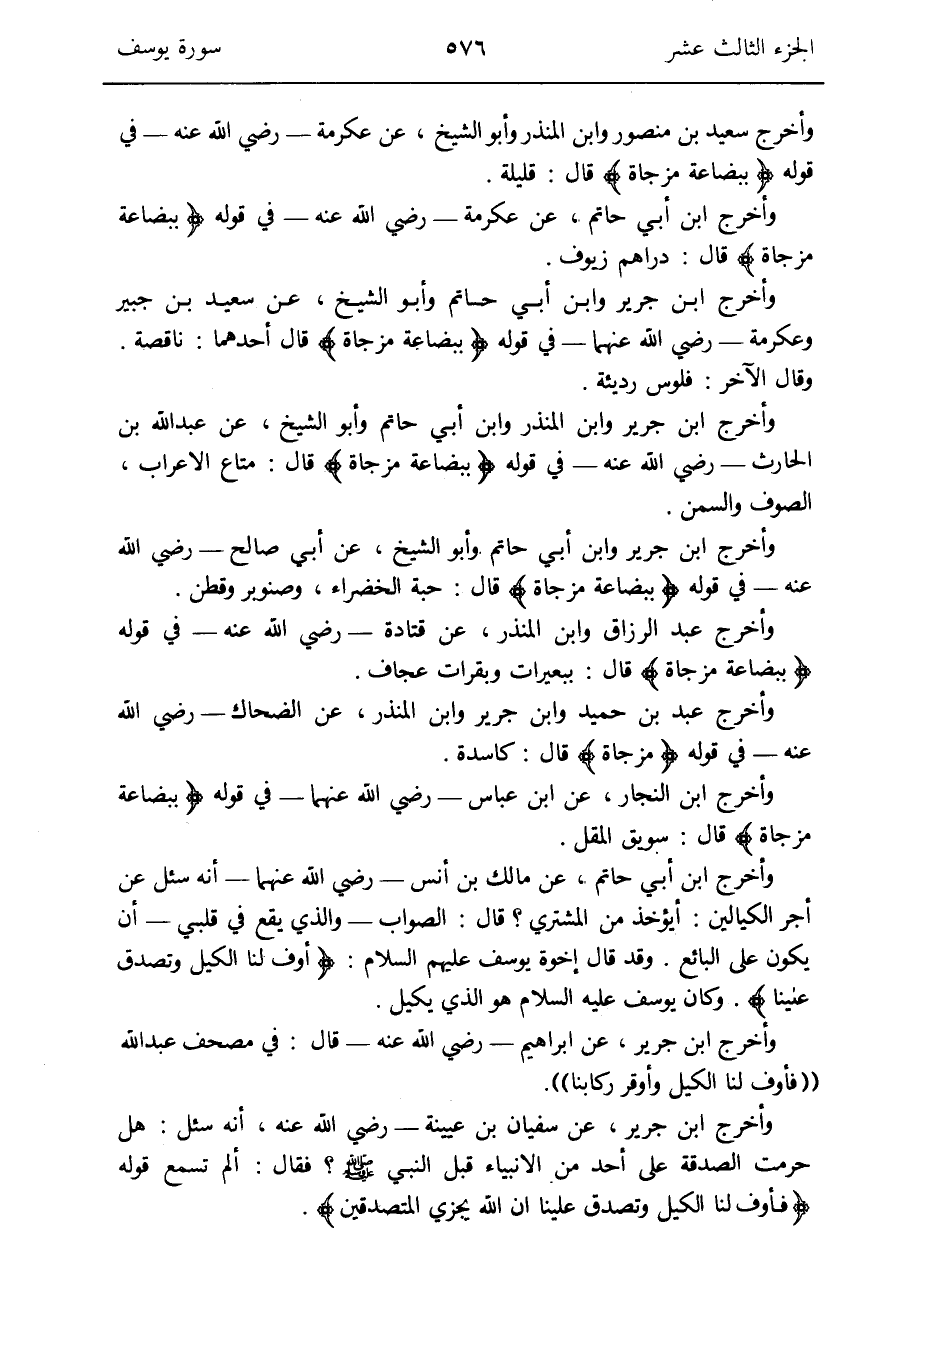 الجزء الثالث عشر ٥٧٦ سورة يوسف
وأخرج سعيد بن منصور وابن المنذر وأبو الشيخ ، عن عكرمة — رضي الله عنه — في
قوله ﴿ ببضاعة مزجاة ﴾ قال : قليلة .
وأخرج ابن أبي حاتم ، عن عكرمة — رضي الله عنه — في قوله ﴿ ببضاعة
مزجاة ﴾ قال : دراهم زيوف .
وأخرج ابن جرير وابن أبي حاتم وأبو الشيخ ، عن سعيد بن جبير
وعكرمة — رضي الله عنهما — في قوله ﴿ ببضاعة مزجاة ﴾ قال أحدهما : ناقصة .
وقال الآخر : فلوس رديئة .
وأخرج ابن جرير وابن المنذر وابن أبي حاتم وأبو الشيخ ، عن عبدالله بن
الحارث — رضي الله عنه — في قوله ﴿ ببضاعة مزجاة ﴾ قال : متاع الاعراب ،
الصوف والسمن .
وأخرج ابن جرير وابن أبي حاتم وأبو الشيخ ، عن أبي صالح — رضي الله
عنه — في قوله ﴿ ببضاعة مزجاة ﴾ قال : حبة الخضراء ، وصنوبر وقطن .
وأخرج عبد الرزاق وابن المنذر ، عن قتادة — رضي الله عنه — في قوله
﴿ ببضاعة مزجاة ﴾ قال : ببعيرات وبقرات عجاف .
وأخرج عبد بن حميد وابن جرير وابن المنذر ، عن الضحاك — رضي الله
عنه — في قوله ﴿ مزجاة ﴾ قال : كاسدة .
وأخرج ابن النجار ، عن ابن عباس — رضي الله عنهما — في قوله ﴿ ببضاعة
مزجاة ﴾ قال : سويق المقل .
وأخرج ابن أبي حاتم ، عن مالك بن أنس — رضي الله عنهما — أنه سئل عن
أجر الكيالين : أيؤخذ من المشتري ؟ قال : الصواب — والذي يقع في قلبي — أن
يكون على البائع . وقد قال إخوة يوسف عليهم السلام : ﴿ أوف لنا الكيل وتصدق
علينا ﴾ . وكان يوسف عليه السلام هو الذي يكيل .
وأخرج ابن جرير ، عن ابراهيم — رضي الله عنه — قال : في مصحف عبدالله
((فأوف لنا الكيل وأوقر ركابنا)).
وأخرج ابن جرير ، عن سفيان بن عيينة — رضي الله عنه ، أنه سئل : هل
حرمت الصدقة على أحد من الانبياء قبل النبي ﷺ ؟ فقال : ألم تسمع قوله
﴿ فأوف لنا الكيل وتصدق علينا ان الله يجزي المتصدقين ﴾ .